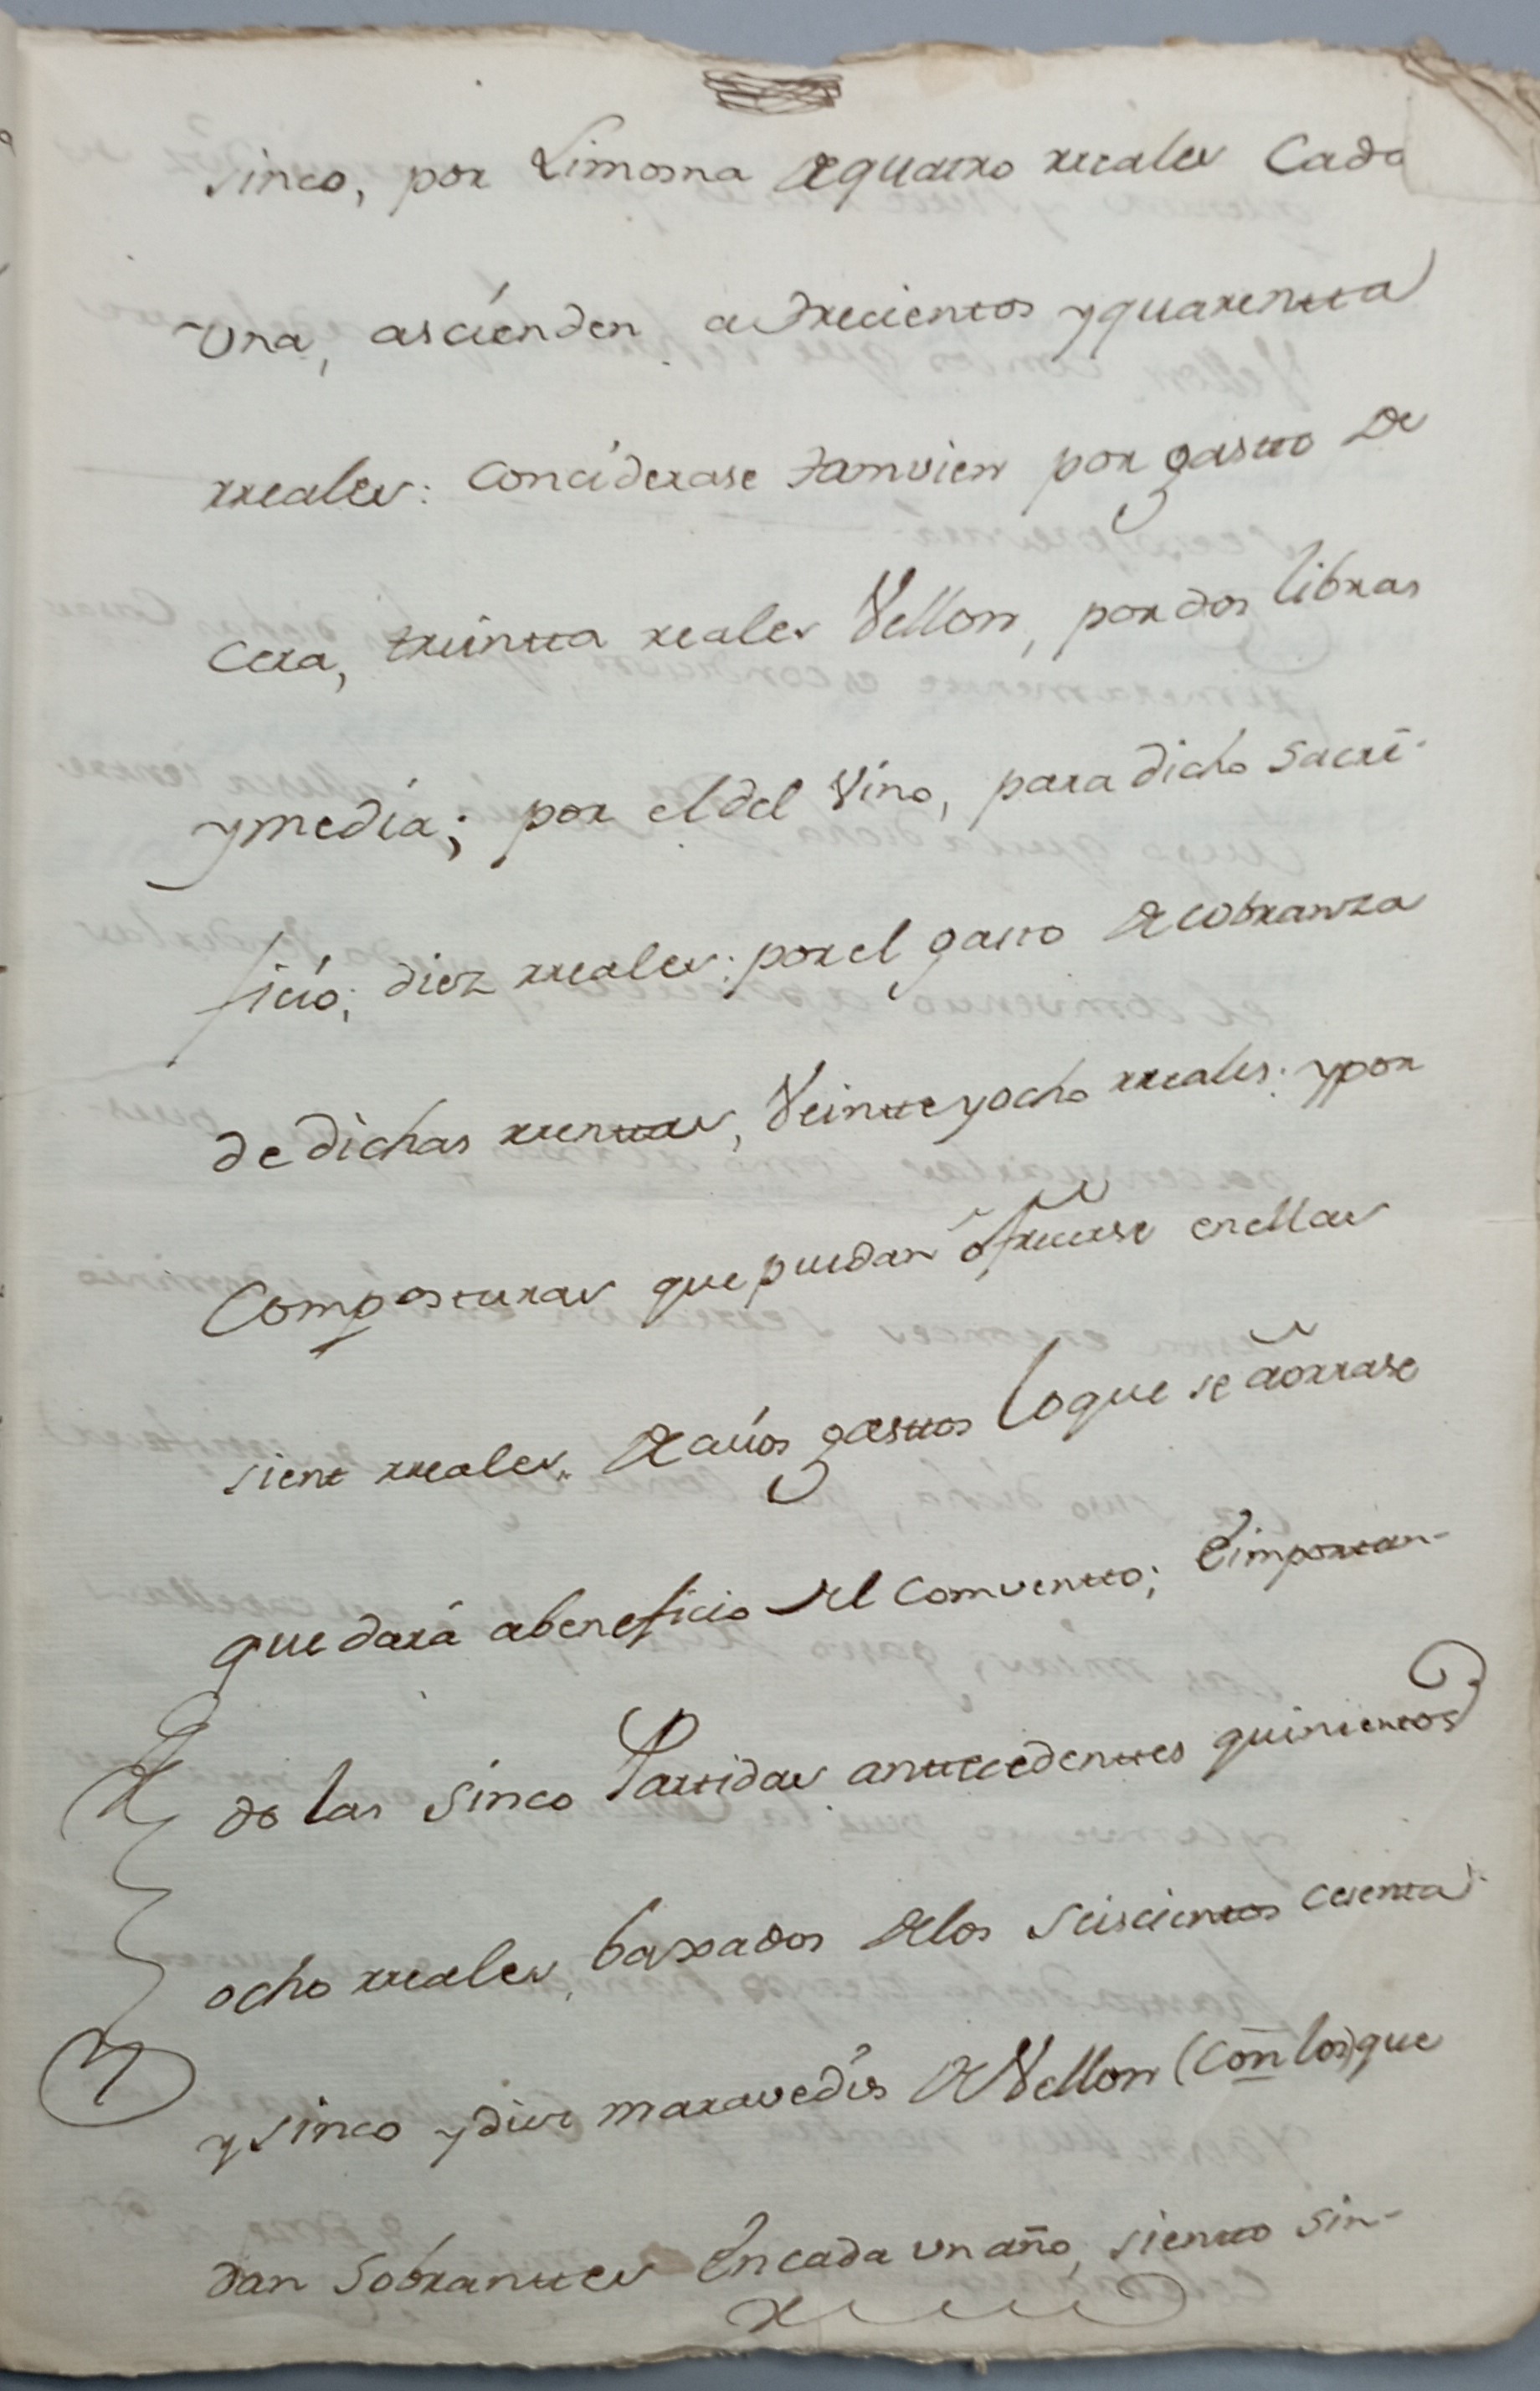 sinco, por Limosna de quatro rreales Cada
Una, asciénden a trecientos y quarentta
rreales: Concíderase tamvien por gastto de
Cera, treintta reales Vellon, por dos libras
y media; por el del Vino, para dicho Sacri-
ficio; diez rreales: por el gasto de cobranza
de dichas rrenttas, Veintte y ocho rreales: y por
Composturas que puedan ofrecerse en ellas
sient rreales. De cuios gasttos lo que se aorrase
quedará a beneficio del Comventto; E importan-
do las sinco Parttidas anttecedenttes quinientos
ocho rreales, baxados de los seiscienttos cesenta
y sinco y diez maravedis de Vellon (con los) que
dan Sobranttes En cada un año, sientto sin-